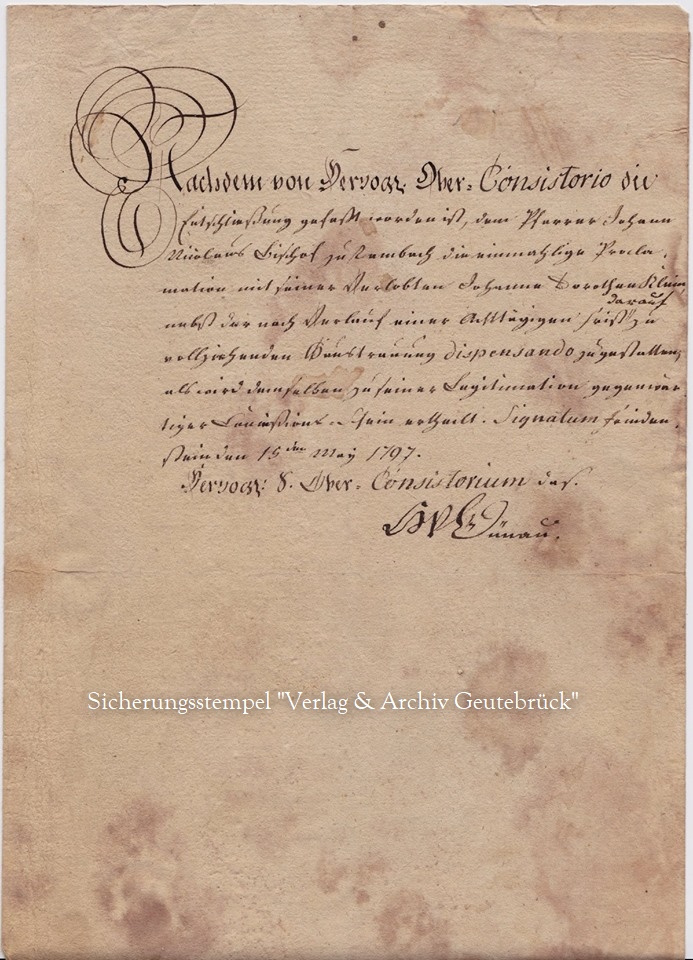 Nachdem von Herzogl. Ober-Consistorio die
Entschließung gefaßt worden ist, dem Pfarrer Johann
Nicolaus Bischof zu Rembach die einmahlige Procla-
mation mit seiner Verlobten Johanna Dorothea Klein
darauf
nebst der nach Verlauf einer Achttägigen Frist zu
vollziehenden Haustrauung dispensando zugestatten;
als wird demselben zu seiner Legitimation gegenwär-
tiger Concessions-Schein ertheilt. Signatum Frieden-
stein den 15ten May 1797.
Herzogl. S. Ober-Consistorium das.
Sicherungsstempel "Verlag & Archiv Geutebrück"